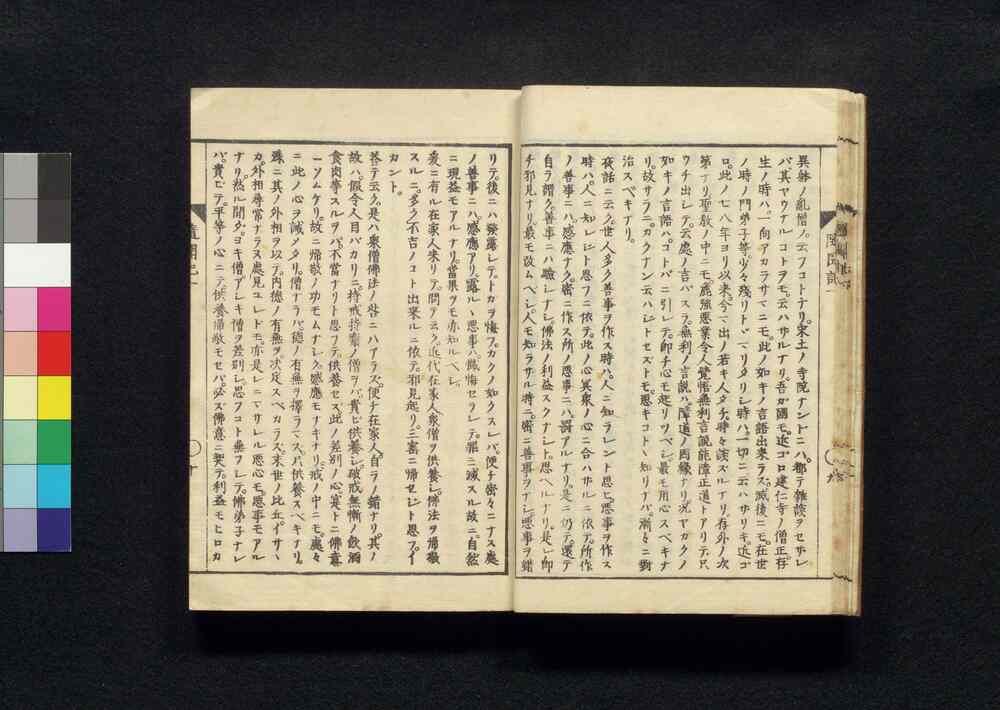 異躰ノ亂僧ノ云フコトナリ。宋土ノ寺院ナンドニハ。都テ雜談ヲセザレ
バ。其ヤウナルコトヲモ。云ハザルナリ。吾ガ國モ。近ゴロ建仁寺ノ僧正存
生ノ時ハ。一向アカラサマニモ。此ノ如キノ言語出來ラズ。滅後ニモ。在世
ノ時ノ門弟子等少々殘リトヾマリタリシ時ハ。一切ニ云ハザリキ。近ゴ
ロ。此ノ七八年ヨリ以來。今マ出ノ若キ人タチ。時々談ズルナリ。存外ノ次
第ナリ。聖敎ノ中ニモ。麁強惡業令人覺悟。無利言説能障正道トアリ。テ只
ウチ出シテ。云處ノ言バスラ。無利ノ言説ハ。障道ノ因縁ナリ。況ヤカクノ
如キノ言語ハ。コトバニ引レテ。即チ心モ起リツベシ。最モ用心スベキナ
リ。故サラニ。カクナン云ハジトセズトモ。惡キコトヽ知リナバ。漸々ニ對
治スベキナリ。
夜話ニ云ク。世人多ク善事ヲ作ス時ハ。人ニ知ラレント思ヒ。惡事ヲ作ス
時ハ。人ニ知レジト思フニ依テ。此ノ心冥衆ノ心ニ合ハザルニ依テ。所作
ノ善事ニハ。感應ナク。密ニ作ス所ノ惡事ニハ。罸アルナリ。是ニ仍テ。還テ
自ラ謂ク。善事ニハ驗シナシ。佛法ノ利益スクナシト。思ヘルナリ。是レ即
チ邪見ナリ。最モ改ムベシ。人モ知ラザル時ニ。密ニ善事ヲナシ。惡事ヲ錯
リテ。後ニハ發露シテ。トガヲ悔フ。カクノ如クスレバ。便チ密々ニナス處
ノ善事ニハ。感應アリ。露ルヽ惡事ハ。懺悔セラレテ。罪ニ滅スル故ニ。自然
ニ現益モアルナリ。當果ヲモ亦知ルベシ。
爰ニ有ル在家人來リテ。問テ云ク。近代在家人。衆僧ヲ供養シ。佛法ヲ帰敬
スルニ。多ク不吉ノコト出來ルニ依テ。邪見起リ。三宝ニ帰セジト思フ。イ
カント。
答テ云ク。是ハ衆僧佛法ノ咎ニハアラズ。便チ在家人。自ラノ錯ナリ。其ノ
故ハ。假令人目バカリニ。持戒持齋ノ僧ヲバ。貴ビ供養シ。破戒無慚ノ飮酒
食肉等スルヲバ。不當ナリト思フテ。供養セズ。此ノ差別ノ心。寔トニ佛意
ニソムケリ。故ニ帰敬ノ功モムナシク。感應モナキナリ。戒ノ中ニモ。處々
ニ此ノ心ヲ誡メタリ。僧ナラバ。德ノ有無ヲ擇ラマズ。只供養スベキナリ。
殊ニ其ノ外相ヲ以テ。内德ノ有無ヲ决定スベカラズ。末世ノ比丘。イサヽ
カ。外相尋常ナラヌ處見ユレドモ。亦是レニマサレル惡心モ。惡事モアル
ナリ。然ル間ダ。ヨキ僧アシキ僧ヲ差別シ。思フコト無フシテ。佛弟子ナレ
バ。貴ビテ。平等ノ心ニテ。供養帰敬モセバ。必ズ佛意ニ契テ。利益モヒロカ